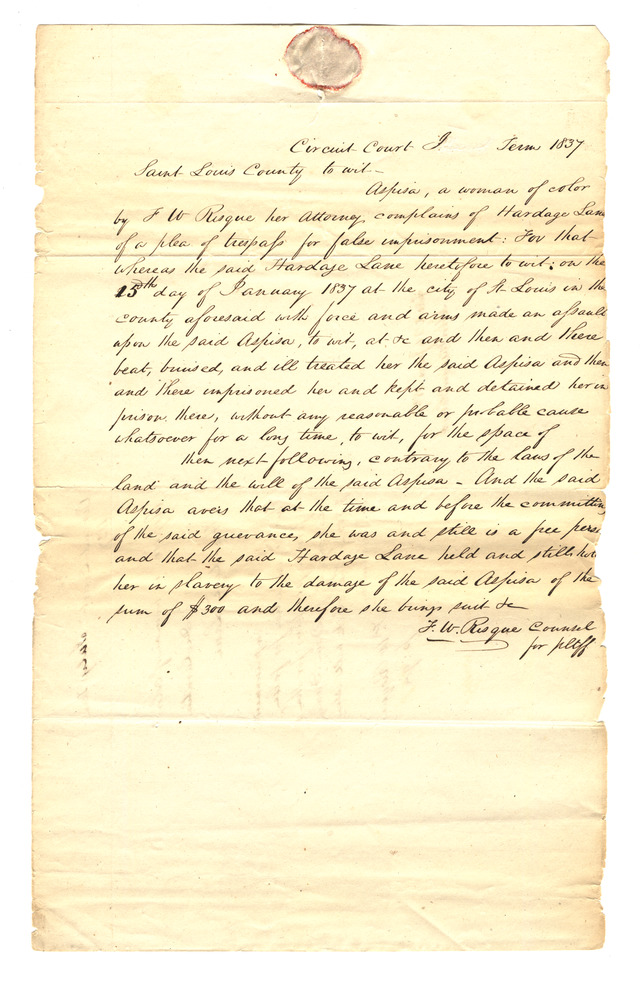 Circuit Court J Term 1837
Saint Louis County to wit -
Aspisa, a woman of color
by F W Risque her Attorney, complains of Hardage Lane
of a plea of trespass for false imprisonment: For that
whereas the said Hardage Lane heretofore to wit: on the
15th day of January 1837 at the city of St Louis in the
county aforesaid with force and arms made an assault
upon the said Aspisa, to wit, at &c and then and there
beat, bruised, and ill treated her the said Aspisa and then
and there imprisoned her and kept and detained her in
prison there, without any reasonable or probable cause
whatsoever for a long time, to wit, for the space of
then next following, contrary to the laws of the
land and the will of the said Aspisa - And the said
Aspisa avers that at the time and before the committin
of the said grievances, she was and still is a free pers
and that the said Hardage Lane held and still ho
her in slavery to the damage of the said Aspisa of the
sum of $300 and therefore she brings suit &c
F. W. Risque Counsel
for pltff -